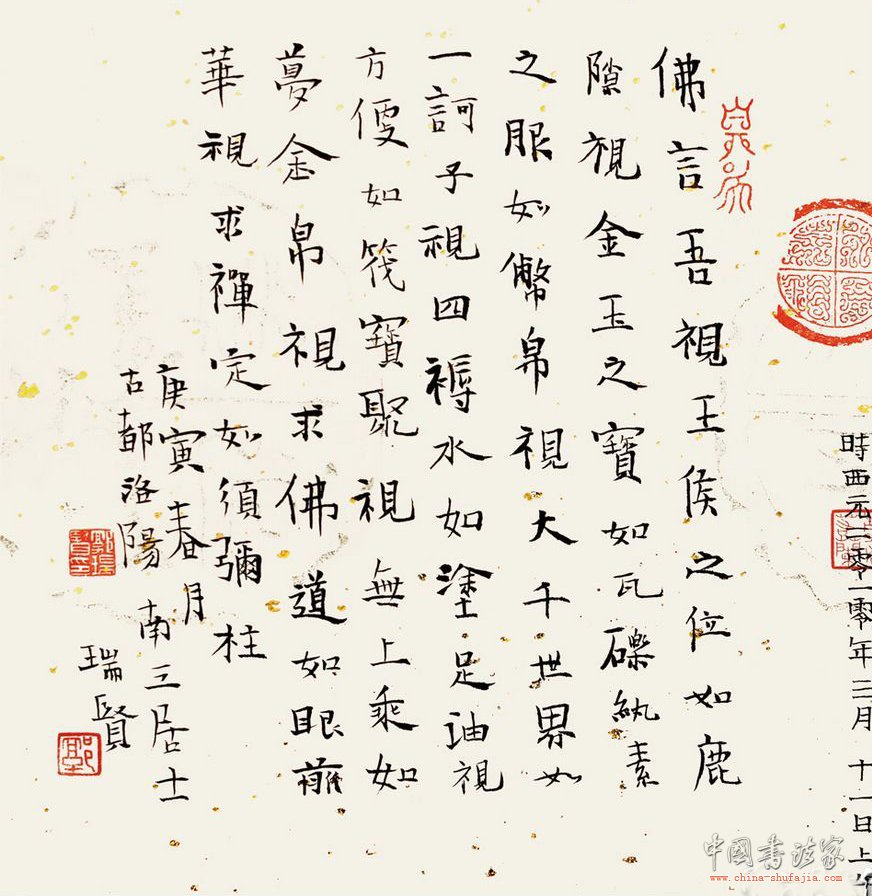 時西元二零一零年三月十一日上午
佛言吾視王侯之位如鹿
隙視金玉之寶如瓦礫紈素
之服如幣帛視大千世界如
一訶子視四褥水如塗足油視
方便如筏寶聚視無上乘如
夢金帛視求佛道如眼前
華視求禪定如須彌柱
庚寅春月
古都洛陽南三居士
瑞賢
中國書法家
www.china-shufajia.com